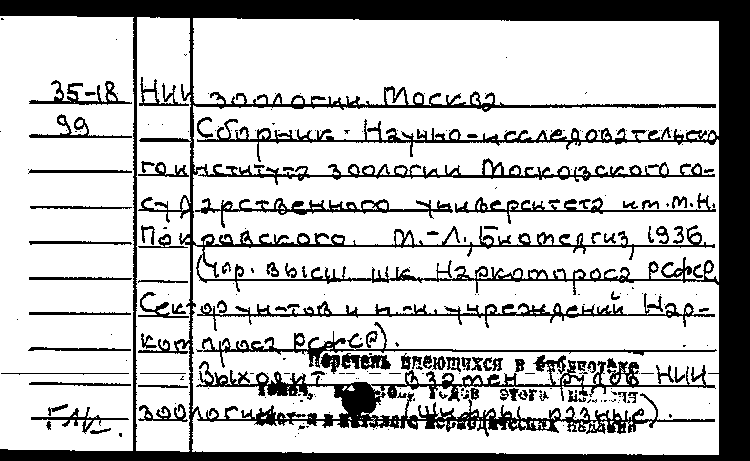 35-18 НИИ зоологии. Москва.
99 Сборник Научно-исследовательско
го института зоологии Московского го-
сударственного университета им. М.Н.
Покровского. М.-Л., Биомедгиз, 1936.
(Упр. высш. шк. Наркомпроса РСФСР,
Сектор ун-тов и н.-и. учреждений Нар-
компроса РСФСР).
Перечень имеющихся в библиотеке
Выходит взамен Трудов НИИ
томов, годов этого издания
зоологии (Шифры разные).
смотри в каталоге периодических изданий